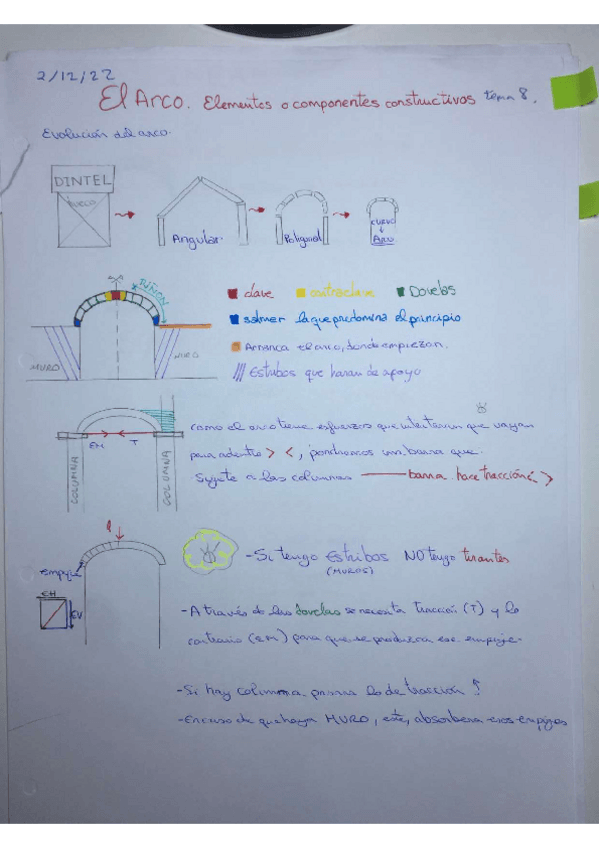 2/12/22
El Arco. Elementos o componentes constructivos tema 8.
Evolución del arco.
DINTEL
HUECO
Angular
Poligonal
CURVO
ARCO
RIÑON
clave contraclave Dovelas
salmer la que predomina el principio
Arranca el arco, donde empiezan.
MURO
MURO
/// Estribos que haran de apoyo
como el arco tiene esfuerzos que intentarian que vayan
para adentro > <, pondremos una barra que
EH T
Sujete a las columnas barra hace tracción < >
COLUMNA
COLUMNA
empuje
- Si tengo Estribos NO tengo tirantes
(MUROS)
EH
EV
- A través de las dovelas se necesita tracción (T) y lo
contrario (EH) para que se produzca ese empuje.
- Si hay columna pasa lo de tracción
- En caso de que haya MURO, este, absorbera esos empujes